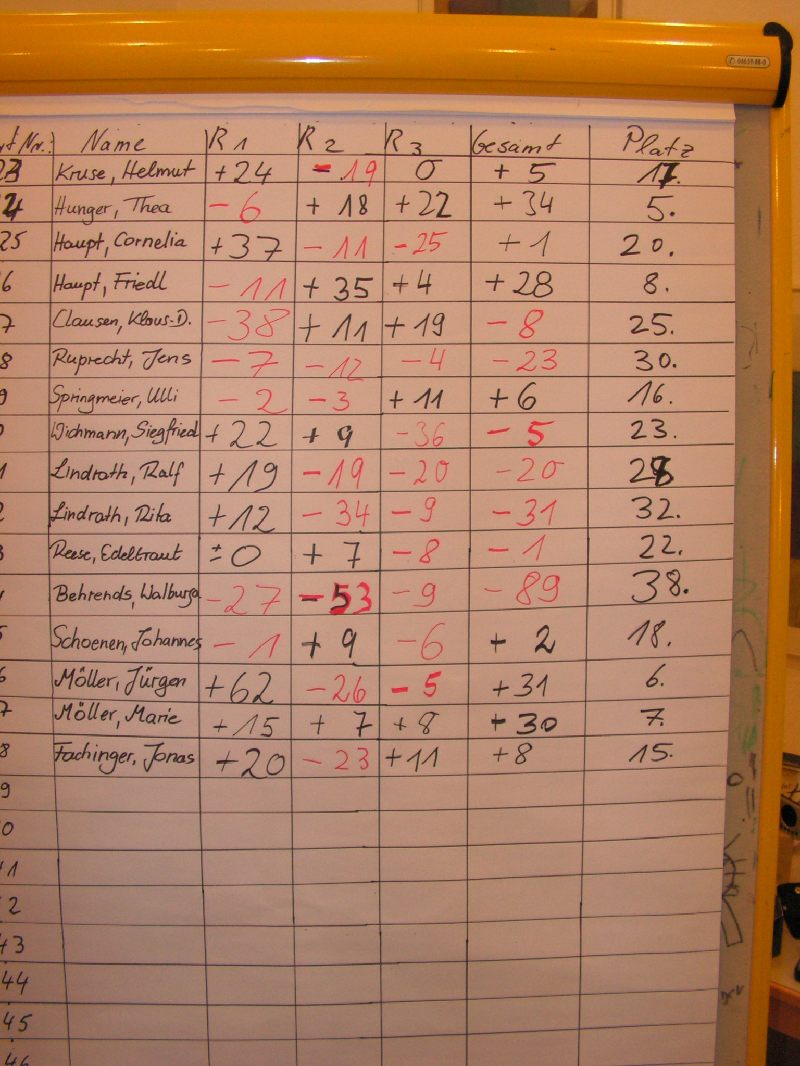 rt Nr. Name R 1 R 2 R 3 Gesamt Platz
23 Kruse, Helmut +24 - 19 0 + 5 17.
24 Hunger, Thea - 6 + 18 +22 + 34 5.
25 Haupt, Cornelia +37 - 11 - 25 + 1 20.
6 Haupt, Friedl - 11 + 35 +4 + 28 8.
7 Clausen, Klaus-D. - 38 + 11 + 19 - 8 25.
8 Ruprecht, Jens - 7 - 12 - 4 - 23 30.
9 Springmeier, Ulli - 2 - 3 + 11 +6 16.
0 Wichmann, Siegfried + 22 + 9 - 36 - 5 23.
1 Lindrath, Ralf + 19 - 19 - 20 - 20 28
2 Lindrath, Rita + 12 - 34 - 9 - 31 32.
3 Reese, Edeltraut ± 0 + 7 - 8 - 1 22.
4 Behrends, Walburga - 27 - 53 - 9 - 89 38.
5 Schoenen, Johannes - 1 + 9 - 6 + 2 18.
6 Möller, Jürgen +62 - 26 - 5 +31 6.
7 Möller, Marie + 15 + 7 +8 + 30 7.
8 Fachinger, Jonas +20 - 23 +11 +8 15.
9
0
41
42
43
44
45
46